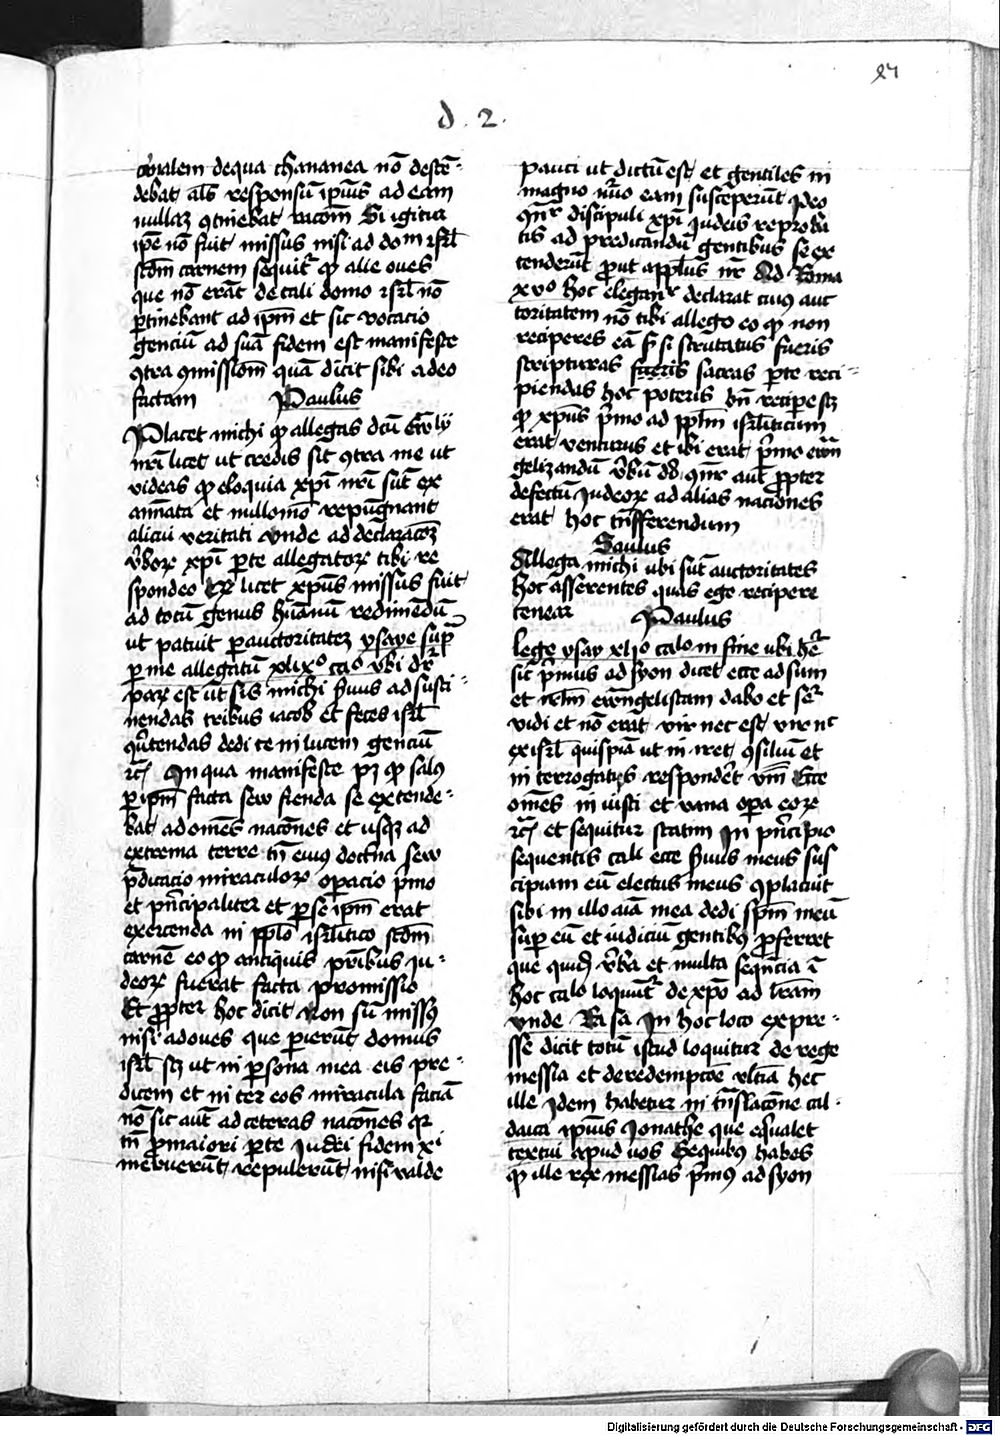 27
d. 2.
c̄oralem de qua chananea nō descē-
debat als̄ responsū ip̄ius ad eam
nullaꝫ ꝯtinebat racom̄ Si igitur
ip̄e nō fuit missus nisi ad dom isrl̄
scdm̄ carnem sequit̄ ꝙ alie oues
que nō erāt de tali domo isrl̄ nō
ꝑtinebant ad ip̄m et sic vocacio
genciū ad suā fidem est manifeste
ꝯtra ꝯmissiom̄ quā dicit sibi a deo
factam Paulus
Placet michi ꝙ allegas dcū
nr̄i licet ut credis sit ꝯtra me ut
videas ꝙ eloquia xp̄i nr̄i sūt ex
aīata et nullomō repugnant
alicui veritati vnde ad declaracōeꝫ
v̄boꝝ xp̄i ꝑ te allegatoꝝ tibi re
spondeo licet xp̄us missus fuit
ad totū genus hūanū redimēdū
ut patuit ꝑ auctoritateꝫ ysaye sup̄
ꝑ me allegatū xlixº caº v̄bi dr̄
paꝝ est ut sis michi s̄uus ad susci-
nendas tribus iacob et feces isrl̄
ꝯūtendas dedi te in lucem genciū
rc̄ In qua manifeste pꝫ ꝙ salꝰ
ꝑ ip̄m facta sew fienda se extende-
bat ad omēs nacōnes et usqꝫ ad
extrema terre tn̄ eius doctīna sew
p̄dicacio miraculoꝝ opacio p̄mo
et pn̄cipaliter et ꝑ se ip̄m erat
exercenda in ppl̄o isrl̄itico scdm̄
carnē eo ꝙ antiquis pr̄ibus iu-
deoꝝ fuerat facta promissio
Et ꝓpter hoc dicit non sū missꝰ
nisi ad oues que ꝑierūt domus
isrl̄ scꝫ ut in ꝑsona mea eis pre-
dicem et in ter eos miracula faciā
nō sic aut̄ ad ceteras nacōnes qr̄
tn̄ ꝓ maiori ꝑte Iudei fidem xi
meruerūt repulerūt nisi valde
pauci ut dictū est et gentiles in
magno nu̅o eam susceperūt Ideo
qn̄r discipuli xp̄i Iudeis reproba
tis ad predicandū gentibus se ex
tenderūt prout appl̄us nr̄ Ad Roma
xvº hoc eleganr̄ declarat cuiꝰ auc
toritatem nō tibi allego eo ꝙ non
reciperes eā s̄ si scrutatus fueris
scripturas fueris sacras ꝑ te reci-
piendas hoc poteris bn̄ recipe scꝫ
ꝙ xp̄us p̄mo ad ppl̄m isrl̄iticum
erat venturus et ibi erat p̄mo ewā
gelizandū v̄bū dei ꝯnr aut̄ ꝓpter
defectū Iudeoꝝ ad alias naciones
erat hoc tn̄sferendum
Saulus
Allega michi ubi sūt auctoritates
hoc asserentes quas ego recipere
tenear Paulus
lege ysay xliº calº in fine ubi he᷑
sic p̄mus ad syon dicet ecce ad sum
et irl̄m ewāngelistam dabo et se᷑
vidi et nō erat vir nec est vir nc
ex isrl̄ quispiā ut in iret ꝯsiliū et
in terrogatus responder̄t vm̄ Ecce
omēs in iusti et vana oꝑa eoꝝ
rc̄ et sequitur statim In pn̄cipio
sequentis cali ecce s̄uus meus sus
cipiam eū electus meus ꝯplacuit
sibi in illo aīa mea dedi spm̄ meū
suꝑ eū et iudiciū gentibꝰ proferret
que quid̄ v̄ba et multa seqn̄cia ī
hoc calº loquūt̄ de xp̄o ad lr̄am
vnde Ra sa In hoc loco expre-
sse dicit totū istud loquitur de rege
messia et de redempcōe vltīa hec
ille Idem habetur in tn̄slacōne cal-
daica ip̄ius Ionathe que eq̄ualet
textui apud uos Ex quibꝰ habes
ꝙ ille rex messias p̄mꝰ ad syon
Digitalisierung gefördert durch die Deutsche Forschungsgemeinschaft - DFG